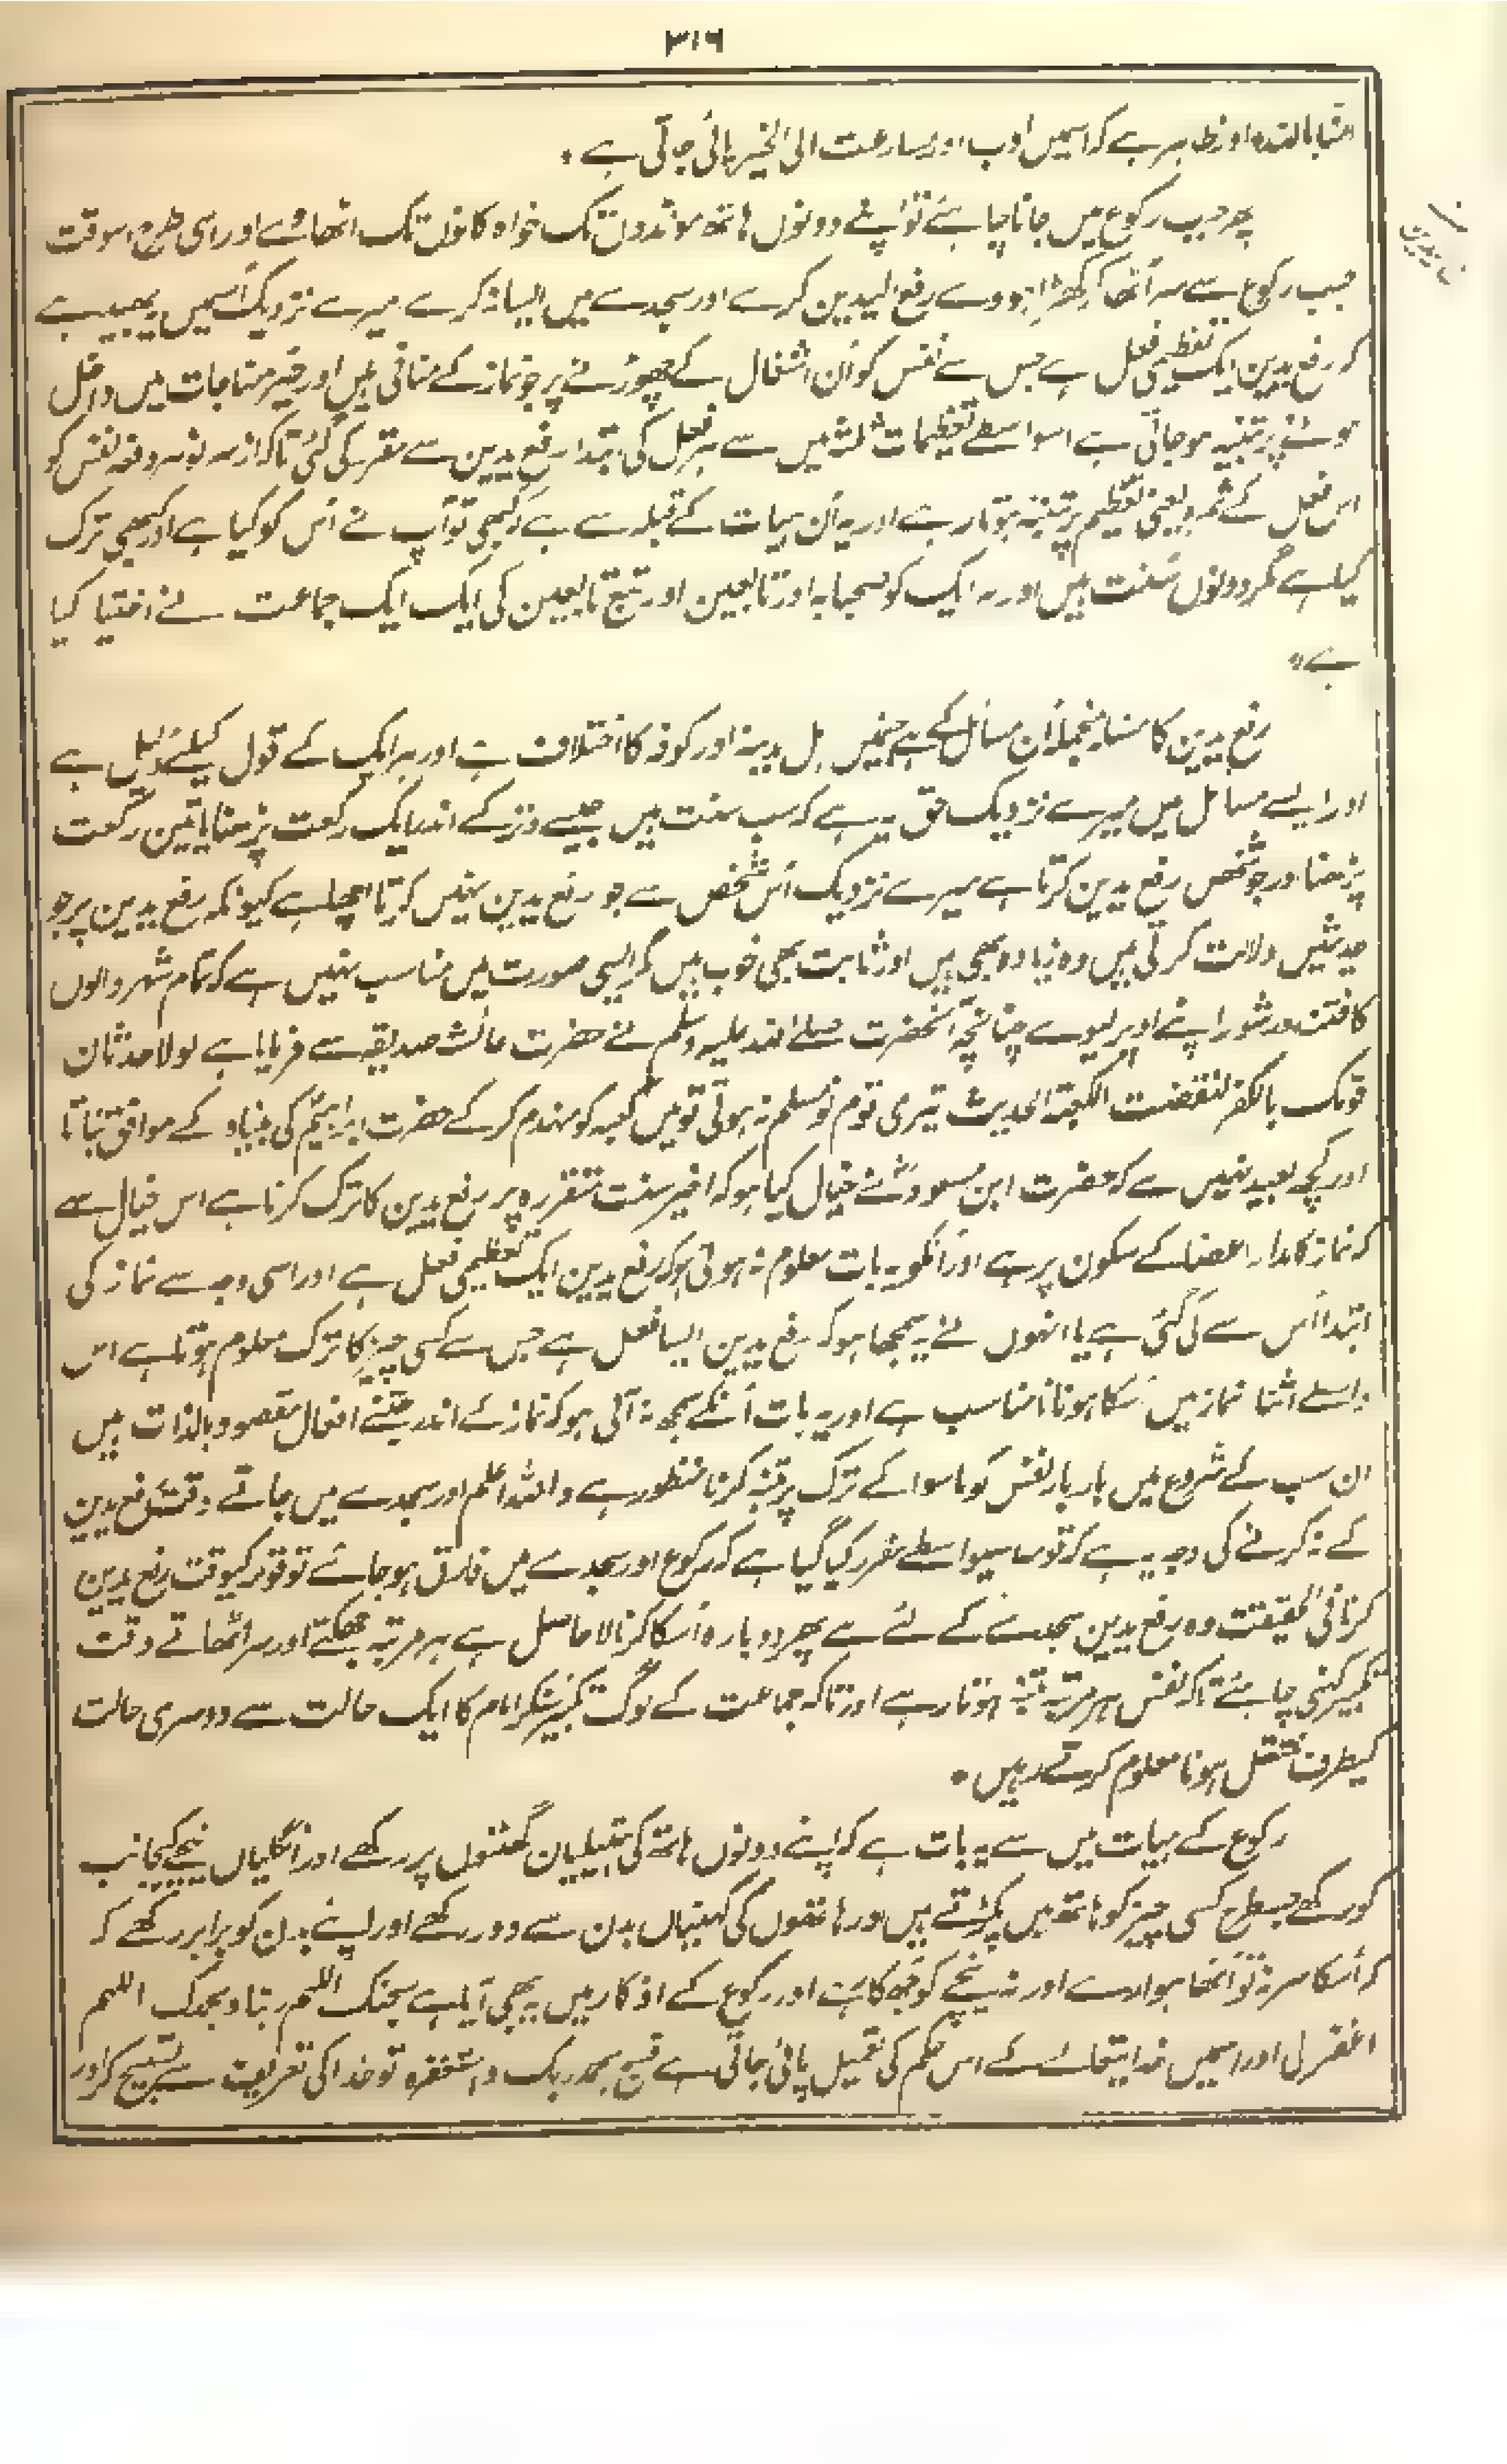 ۳۱۶
اور ظاہر ہے کہ اسمیں ادب اور مسارعت الی الخیر پائی جاتی ہے ٭
پھر جب رکوع میں جانا چاہئے تو اپنے دونوں ہاتھ مونڈھوں تک خواہ کانوں تک اٹھائے اور اسی طرح اسوقت
جب رکوع سے سر اُٹھا کر کھڑا ہووے رفع الیدین کرے اور سجدے میں ایسا نہ کرے میرے نزدیک اُسمیں یہ بھید ہے
کہ رفع یدین ایک تعظیمی فعل ہے جس سے نفس کو اُن اشغال کے چھوڑنے پر جو نماز کے منافی ہیں اور حیز مناجات میں داخل
ہونے پر تنبیہ ہو جاتی ہے اسواسطے تعظیمات ثلثہ میں سے ہر فعل کی ابتدا رفع یدین سے مقرر کی گئی تاکہ از سر نو ہر دفعہ نفس کو
اس فعل کے ثمرہ یعنی تعظیم پر تنبہ ہوتا رہے اور یہ اُن ہیات کے قبیلہ سے ہے کہ کبھی تو آپ نے اُس کو کیا ہے اور کبھی ترک
کیا ہے مگر دونوں سنت ہیں اور ہر ایک کو صحابہ اور تابعین اور تبع تابعین کی ایک ایک جماعت نے اختیار کیا
ہے ٭
رفع یدین کا مسئلہ منجملہ اُن مسائل کے ہے جنمیں اہل مدینہ اور کوفہ کا اختلاف ہے اور ہر ایک کے قول کیلئے دلیل ہے
اور ایسے مسائل میں میرے نزدیک حق یہ ہے کہ سب سنت ہیں جیسے وتر کے اندر ایک رکعت پڑھنا یا تین رکعت
پڑھنا اور جو شخص رفع یدین کرتا ہے میرے نزدیک اُس شخص سے جو رفع یدین نہیں کرتا اچھا ہے کیونکہ رفع یدین پر جو
حدیثیں دلالت کرتی ہیں وہ زیادہ بھی ہیں اور ثابت بھی خوب ہیں مگر ایسی صورت میں مناسب نہیں ہے کہ تمام شہر والوں
کا فتنہ اور شور اپنے اوپر لیوے چنانچہ آنحضرت صلے اللہ علیہ وسلم نے حضرت عائشہ صدیقہ سے فرمایا ہے لولا حدثان
قومک بالکفر لنقضت الکعبۃ الحدیث تیری قوم نومسلم نہ ہوتی تو میں کعبہ کو منہدم کر کے حضرت ابراہیمؑ کی بنیاد کے موافق بناتا
اور کچھ بعید نہیں ہے کہ حضرت ابن مسعودؓ نے خیال کیا ہو کہ اخیر سنت متقررہ پر رفع یدین کا ترک کرنا ہے اس خیال سے
کہ نماز کا مدار اعضا کے سکون پر ہے اور اُنکو یہ بات معلوم نہ ہوئی ہو کہ رفع یدین ایک تعظیمی فعل ہے اور اسی وجہ سے نماز کی
ابتدا اُس سے کی گئی ہے یا انہوں نے یہ سمجھا ہو کہ رفع یدین ایسا فعل ہے جس سے کسی چیز کا ترک معلوم ہوتا ہے اس
واسطے اثنا نماز میں اُسکا ہونا نامناسب ہے اور یہ بات اُنکے سمجھ نہ آئی ہو کہ نماز کے اندر جتنے افعال مقصود بالذات ہیں
ان سب کے شروع میں بار بار نفس کو ماسوا کے ترک پر تنبہ کرنا منظور ہے واللہ اعلم اور سجدے میں جاتے وقت رفع یدین
کے نہ کرنے کی وجہ یہ ہے کہ قومہ اسیواسطے مقرر کیا گیا ہے کہ رکوع اور سجدے میں فارق ہو جائے تو قومہ کیوقت رفع یدین
کرنا فی الحقیقت وہ رفع یدین سجدے کے لئے ہے پھر دوبارہ اُسکا کرنا لاحاصل ہے ہر مرتبہ جھکتے اور سر اٹھاتے وقت
تکبیر کہنی چاہئے تاکہ نفس ہر مرتبہ متنبہ ہوتا رہے اور تاکہ جماعت کے لوگ تکبیر سنکر امام کا ایک حالت سے دوسری حالت
کیطرف منتقل ہونا معلوم کرتے رہیں ٭
رکوع کے ہیات میں سے یہ بات ہے کہ اپنے دونوں ہاتھ کی ہتیلیان گھٹنوں پر رکھے اور انگلیاں نیچے کیجانب
کو رکھے جسطرح کسی چیز کو ہاتھ میں پکڑتے ہیں اور ہاتھوں کی کہنیاں بدن سے دور رکھے اور اپنے بدن کو برابر رکھے کہ
کہ اُسکا سر نہ تو اُٹھا ہوا رہے اور نہ نیچے کو جھکا رہے اور رکوع کے اذکار میں یہ بھی آیا ہے سبحنک اللہم ربنا وبحمدک اللہم
اغفر لی اور اسمیں خدا یتعالےٰ کے اس حکم کی تعمیل پائی جاتی ہے فسبح بحمد ربک واستغفرہ تو خدا کی تعریف سے تسبیح کر اور